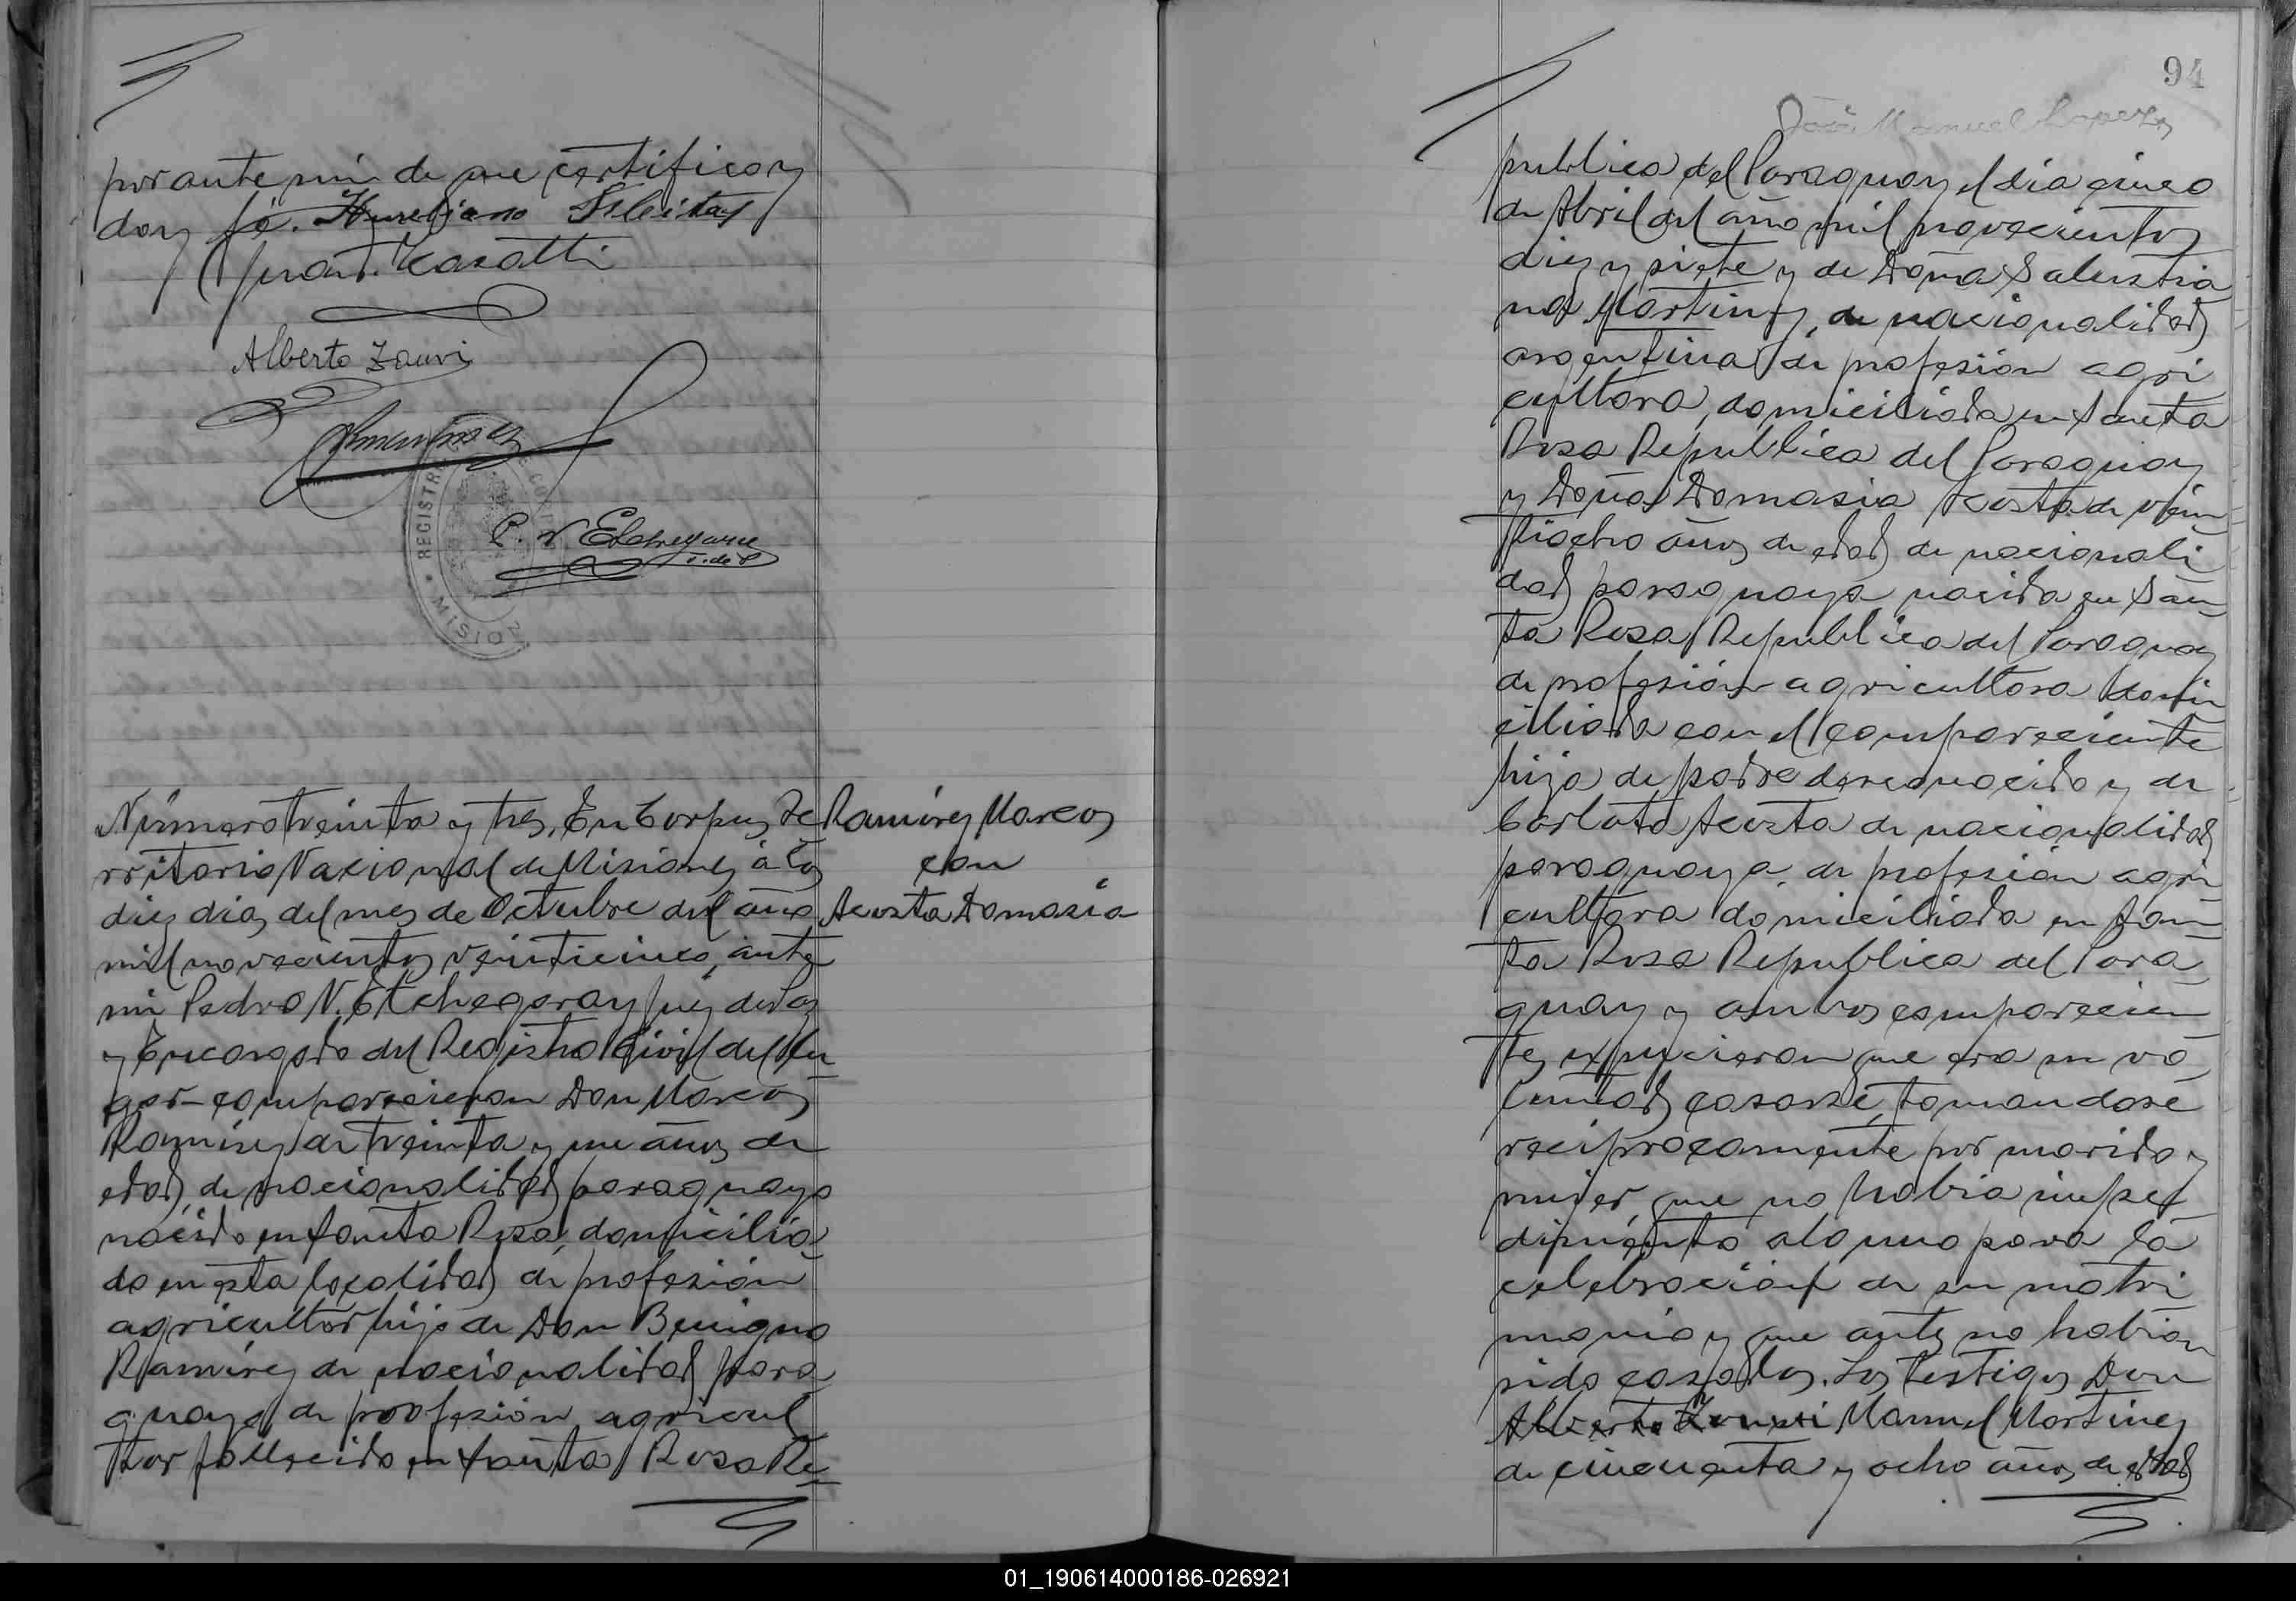 por ante mi de que certifico y
doy fé. Aureliano Fleitas
Juan J. Casatti
Alberto Zauri
REGISTRO
MISIO
P. N. Etchegaray
J. de P
Número treinta y tres. En Corpus, Te
rritorio Nacional de Misiones, á los
diez dias del mes de Octubre del año
mil novecientos veinticinco, ante
mi Pedro N. Etchegaray Juez de Paz
y Encargado del Registro Civil del lu
gar comparecieron Don Marcos
Ramirez de treinta y un años de
edad, de nacionalidad paraguaya
nacido en Santa Rosa, domicilia
do en esta localidad de profesión
agricultor hijo de Don Benigno
Ramirez de nacionalidad para
guaya de profesión agricul
tor fallecido en Santa Rosa Re
Ramirez Marcos
con
Acosta Domasia
94
José Manuel Lopez
publica del Paraguay el dia cinco
de Abril del año mil novecientos
diez y siete y de Doña Salustia
na Martinez, de nacionalidad
argentina de profesión agri
cultora, domiciliada en Santa
Rosa Republica del Paraguay
y Doña Domasia Acosta de vein
tiocho años de edad de nacionali
dad paraguaya nacida en San
ta Rosa Republica del Paraguay
de profesión agricultora domi
ciliada con el compareciente
hija de padre desconocido y de
Carlota Acosta de nacionalidad
paraguaya, de profesión agri
cultora domiciliada en San
ta Rosa Republica del Para
guay y ambos comparecien
tes expucieron que era su vo
luntad casarse, tomandose
reciprocamente por marido y
mujer, que no habia impe
dimento alguno para la
celebración de su matri
monio y que antes no habian
sido casados. Los testigos Don
Alberto Zauri Manuel Martinez
de cincuenta y ocho años de edad
01_190614000186-026921